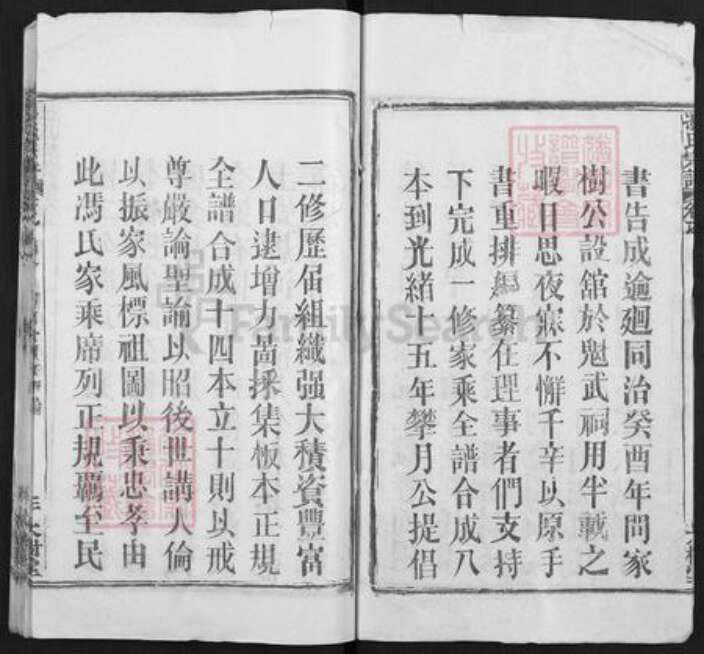 書告成逾廻同治癸酉年間家
樹公設舘於魁武祠用半載之
暇日思夜寐不懈千辛以原手
書重排編纂在理事者們支持
下完成一修家乘全譜合成八
本到光緒十五年攀月公提倡
二修歷届組織强大積資豐富
人口逮增力啚採集板本正規
全譜合成十四本立十則以戒
尊嚴論聖諭以昭後世講人倫
以振家風標祖圖以秉忠孝由
此馮氏家乘席列正規覊至民
FamilySearch